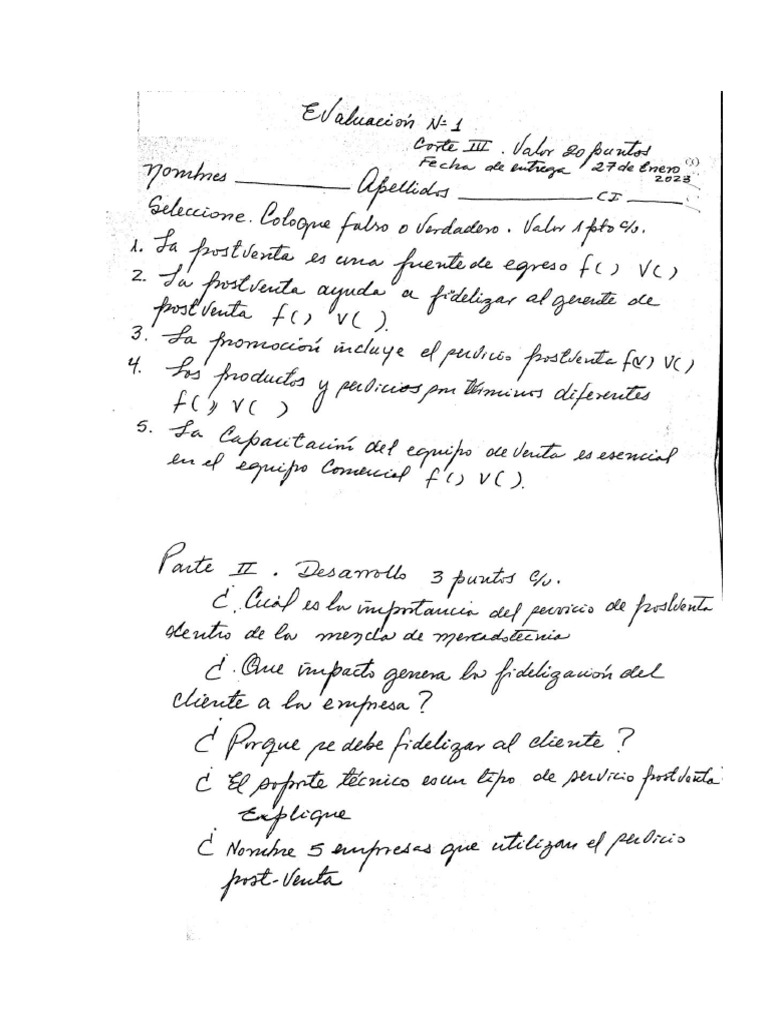 Evaluación Nº 1
Corte III. Valor 20 puntos
Fecha de entrega 27 de Enero
2023
Nombres __________ Apellidos __________ CI ______
Seleccione. Coloque falso o verdadero. Valor 1 pto c/u.
1. La postventa es una fuente de egreso f( ) V( )
2. La postventa ayuda a fidelizar al gerente de
postventa f( ) V( ).
3. La promoción incluye el servicio postventa f( ) V( )
4. Los productos y servicios son términos diferentes
f( ) V( )
5. La Capacitación del equipo de venta es esencial
en el equipo Comercial f( ) V( ).
Parte II. Desarrollo 3 puntos c/u.
¿ Cuál es la importancia del servicio de postventa
dentro de la mezcla de mercadotecnia
¿ Que impacto genera la fidelización del
cliente a la empresa?
¿ Porque se debe fidelizar al cliente?
¿ El soporte técnico es un tipo de servicio postventa
Explique
¿ Nombre 5 empresas que utilizan el servicio
post-venta